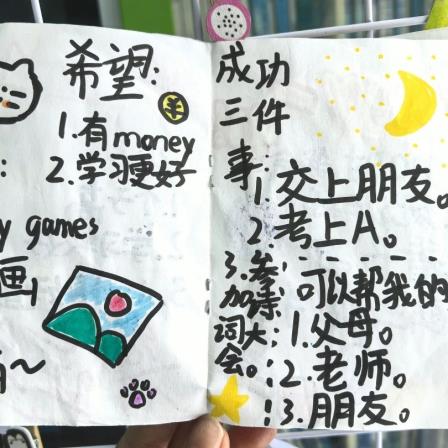 希望:
1.有money
2.学习更好
y games
画
~
成功
三件
事:
1.交上朋友。
2.考上A。
3.参
加诗
词大
会。
可以帮我的
1.父母。
2.老师。
3.朋友。